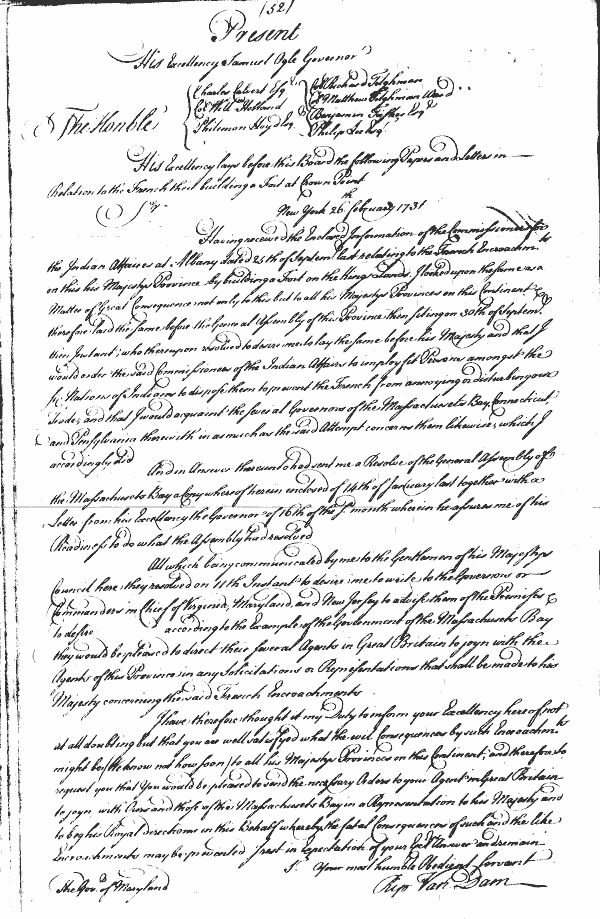 (52)
Present
His Excellency Samuel Ogle Governor
Charles Calvert Esqr Col Richard Tilghman
Col Will Holland Col Matthew Tilghman Ward
The Honble
Philemon Lloyd Esq Benjamin Tasker Esqr
Philip Lee Esqr
His Excellency lays before this Board the following Papers and Letters in
Relation to the French their building a Fort at Crown Point
New York 26th February 1731
Sr
Having received the Enclosed Information of the Commissioners for
the Indian Affaires at Albany dated 25th of Septemr last relating to the French Encroachmts
on this his Majestys Province by building a Fort on the kings Lands, I looked upon the same as a
Matter of Great Consequence not only to this but to all his Majestys Provinces on this Continent &
therefore laid the same before the General Assembly of this Province then siting on 30th of Septemr
who thereupon resolved to desire me to lay the same before his Majesty and that I
would order the said Commissioners of the Indian Affairs to imploy fit Persons amongst the
six Nations of Indians to dispose them to prevent the French from annoying or disturbing our
Trade, and that I would acquaint the several Governors of the Massachusets Bay, Connecticut
and Pensylvania therewith in as much as the said Attempt concerns them likewise, which I
accordingly did
And in Answer thereunto had sent me a Resolve of the General Assembly of
the Massachusets Bay a Copy whereof herein enclosed of 14th of January last together with a
Letter from his Excellency the Governor of 16th of the month wherein he assures me of his
Readiness to do what the Assembly had resolved
All which being communicated by me to the Gentlemen of his Majestys
Council here, they resolved on 11th Instant to desire me to write to the Governors or
Commanders in Chief of Virginia, Maryland, and New Jersey to advise them of the Premisses &
to desire according to the Example of the Government of the Massachusets Bay
they would be pleased to direct their several Agents in Great Britain to joyn with the
Agents of this Province in any Solicitations or Representations that shall be made to his
Majesty concerning the said French Encroachments
I have therefore thought it my Duty to inform your Excellency hereof not
at all doubting but that you are well satisfyed what the evil Consequences by such Encroachmts
might be (We know not how soon) to all his Majestys Provinces on this Continent, and therefore to
request you that You would be pleased to send the necessary Orders to your Agent in Great Britain
to joyn with Ours and those of the Massachusets Bay in a Representation to his Majesty and
to beg his Royal directions in this Behalf whereby the fatal Consequences of such and the like
Encroachments may be prevented I rest in expectation of your Exclys Answer and remain
Sr Your most humble Obedient Servant
The Govr of Maryland Rip Van Dam